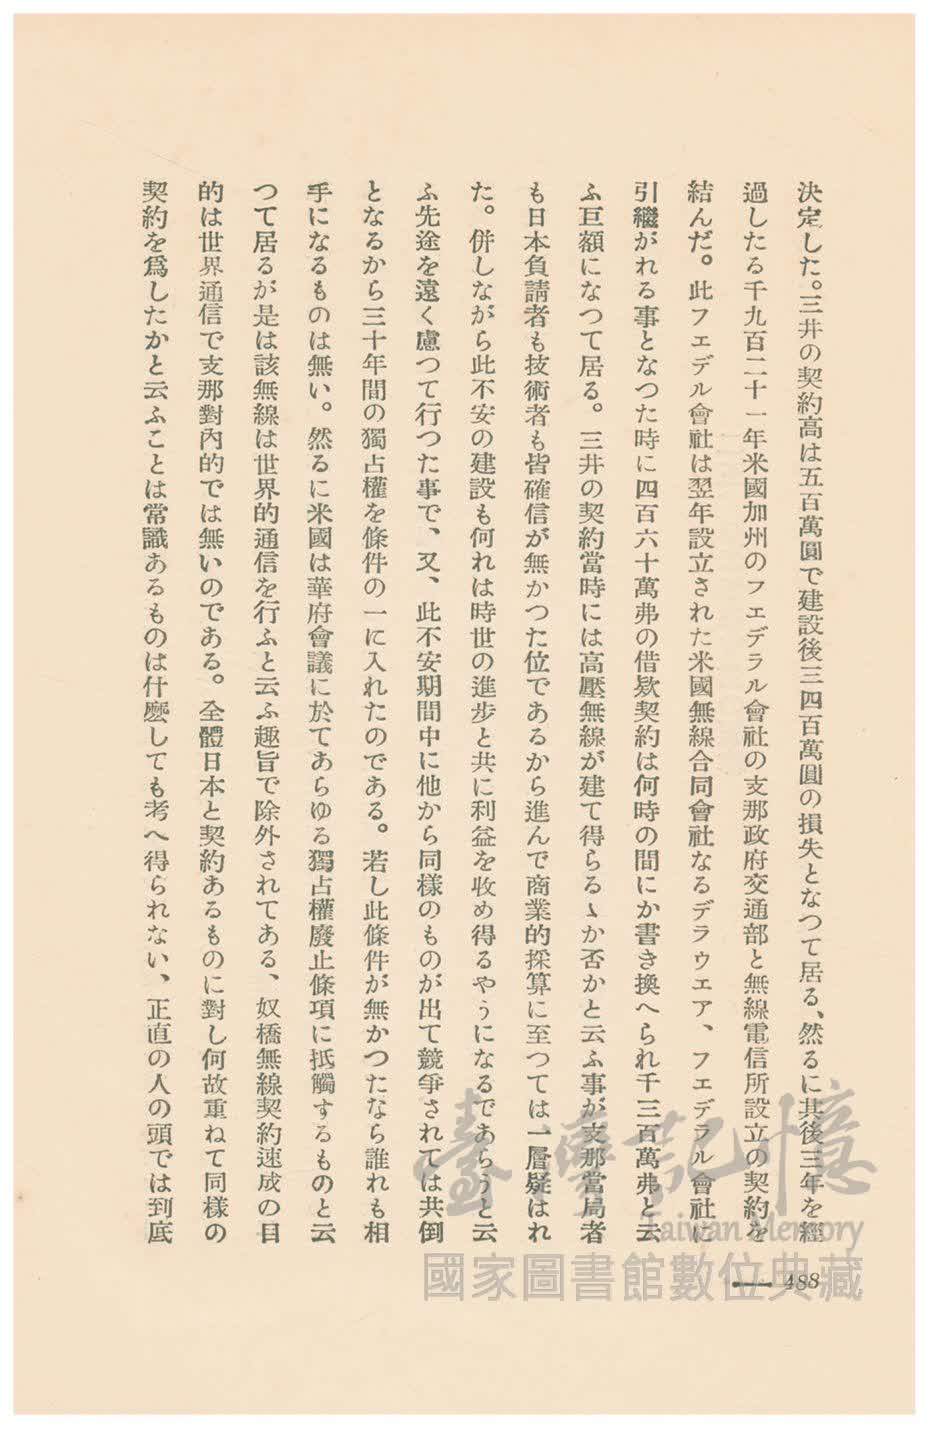 決定した。三井の契約高は五百萬圓で建設後三四百萬圓の損失となつて居る、然るに其後三年を經
過したる千九百二十一年米國加州のフェデラル會社の支那政府交通部と無線電信所設立の契約を
結んだ。此フェデル會社は翌年設立された米國無線合同會社なるデラウエア、フェデラル會社に
引繼がれる事となつた時に四百六十萬弗の借欵契約は何時の間にか書き換へられ千三百萬弗と云
ふ巨額になつて居る。三井の契約當時には高壓無線が建て得らるゝか否かと云ふ事が支那當局者
も日本負請者も技術者も皆確信が無かつた位であるから進んで商業的採算に至つては一層疑はれ
た。併しながら此不安の建設も何れは時世の進步と共に利益を收め得るやうになるであらうと云
ふ先途を遠く慮つて行つた事で、又、此不安期間中に他から同樣のものが出て競爭されては共倒
となるから三十年間の獨占權を條件の一に入れたのである。若し此條件が無かつたなら誰れも相
手になるものは無い。然るに米國は華府會議に於てあらゆる獨占權廢止條項に抵觸するものと云
つて居るが是は該無線は世界的通信を行ふと云ふ趣旨で除外されてある、奴橋無線契約速成の目
的は世界通信で支那對內的では無いのである。全體日本と契約あるものに對し何故重ねて同樣の
契約を爲したかと云ふことは常識あるものは什麽しても考へ得られない、正直の人の頭では到底
488
臺灣記憶
Taiwan Memory
國家圖書館數位典藏